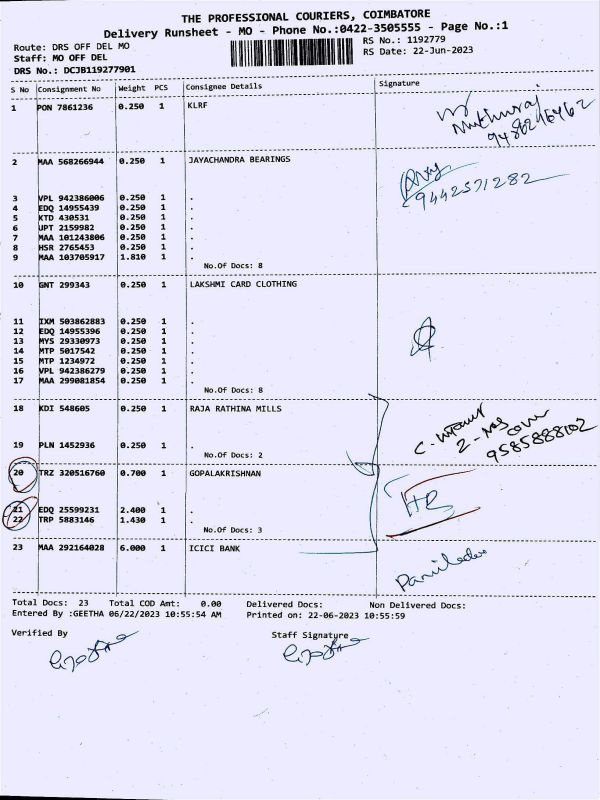 THE PROFESSIONAL COURIERS, COIMBATORE
Delivery Runsheet - MO - Phone No.:0422-3505555 - Page No.:1
Route: DRS OFF DEL MO
RS No.: 1192779
Staff: MO OFF DEL
RS Date: 22-Jun-2023
DRS No.: DCJB119277901
S No Consignment No Weight PCS Consignee Details Signature
1 PON 7861236 0.250 1 KLRF
Muthuraj
2 MAA 568266944 0.250 1 JAYACHANDRA BEARINGS
9442571282
3 VPL 942386006 0.250 1 .
4 EDQ 14955439 0.250 1 .
5 KTD 430531 0.250 1 .
6 UPT 2159982 0.250 1 .
7 MAA 101243806 0.250 1 .
8 HSR 2765453 0.250 1 .
9 MAA 103705917 1.810 1 .
No.Of Docs: 8
10 GNT 299343 0.250 1 LAKSHMI CARD CLOTHING
11 IXM 503862883 0.250 1 .
12 EDQ 14955396 0.250 1 .
13 MYS 29330973 0.250 1 .
14 MTP 5017542 0.250 1 .
15 MTP 1234972 0.250 1 .
16 VPL 942386279 0.250 1 .
17 MAA 299081854 0.250 1 .
No.Of Docs: 8
18 KDI 548605 0.250 1 RAJA RATHINA MILLS
2-Nos
cover
19 PLN 1452936 0.250 1 .
No.Of Docs: 2
20 TRZ 320516760 0.700 1 GOPALAKRISHNAN
21 EDQ 25599231 2.400 1 .
22 TRP 5883146 1.430 1 .
No.Of Docs: 3
23 MAA 292164028 6.000 1 ICICI BANK
Total Docs: 23 Total COD Amt: 0.00 Delivered Docs: Non Delivered Docs:
Entered By :GEETHA 06/22/2023 10:55:54 AM Printed on: 22-06-2023 10:55:59
Verified By Staff Signature